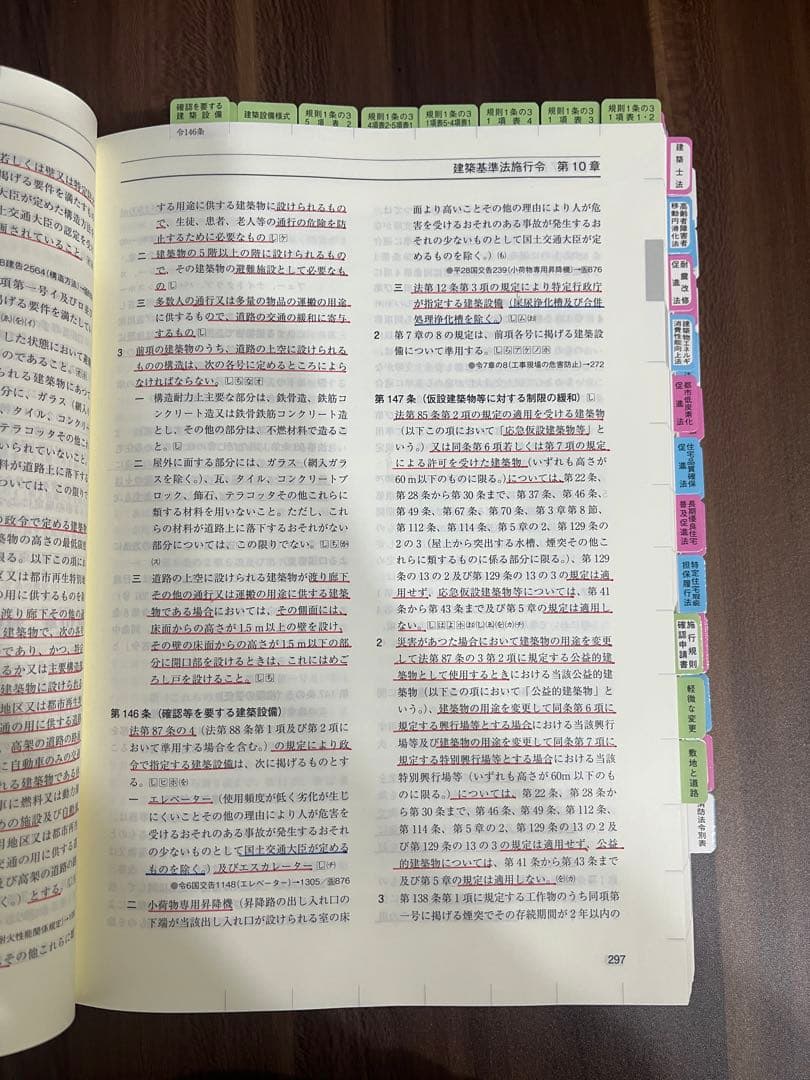 確認を要する
建築設備
建築設備様式
規則1条の3
5項表2
規則1条の3
4項表2・5項表1
規則1条の3
1項表5・4項表1
規則1条の3
1項表4
規則1条の3
1項表3
規則1条の3
1項表1・2
令146条
建築基準法施行令 第10章
する用途に供する建築物に設けられるもの
で、生徒、患者、老人等の通行の危険を防
止するために必要なもの
二 建築物の5階以上の階に設けられるもの
で、その建築物の避難施設として必要なも
の
三 多数人の通行又は多量の物品の運搬の用途
に供するもので、道路の交通の緩和に寄与
するもの
3 前項の建築物のうち、道路の上空に設けられる
ものの構造は、次の各号に定めるところによら
なければならない。
一 構造耐力上主要な部分は、鉄骨造、鉄筋コ
ンクリート造又は鉄骨鉄筋コンクリート造
とし、その他の部分は、不燃材料で造るこ
と。
二 屋外に面する部分には、ガラス（網入ガラ
スを除く。）、瓦、タイル、コンクリートブ
ロック、飾石、テラコッタその他これらに
類する材料を用いないこと。ただし、これ
らの材料が道路上に落下するおそれがない
部分については、この限りでない。
三 道路の上空に設けられる建築物が渡り廊下
その他の通行又は運搬の用途に供する建築
物である場合においては、その側面には、
床面からの高さが1.5m以上の壁を設け、
その壁の床面からの高さが1.5m以下の部
分に開口部を設けるときは、これにはめご
ろし戸を設けること。
第146条（確認等を要する建築設備）
法第87条の4（法第88条第1項及び第2項に
おいて準用する場合を含む。）の規定により政
令で指定する建築設備は、次に掲げるものとす
る。
一 エレベーター（使用頻度が低く劣化が生じ
にくいことその他の理由により人が危害を
受けるおそれのある事故が発生するおそれ
の少ないものとして国土交通大臣が定める
ものを除く。）及びエスカレーター
●令6国交告1148(エレベーター)→1305／876
二 小荷物専用昇降機（昇降路の出し入れ口の
下端が当該出し入れ口が設けられる室の床
面より高いことその他の理由により人が危
害を受けるおそれのある事故が発生するお
それの少ないものとして国土交通大臣が定
めるものを除く。）
●平28国交告239(小荷物専用昇降機)→876
三 法第12条第3項の規定により特定行政庁
が指定する建築設備（屎尿浄化槽及び合併
処理浄化槽を除く。）
2 第7章の8の規定は、前項各号に掲げる建築設
備について準用する。
●令7章の8(工事現場の危害防止)→272
第147条（仮設建築物等に対する制限の緩和）
法第85条第2項の規定の適用を受ける建築物
（以下この項において「応急仮設建築物等」と
いう。）又は同条第6項若しくは第7項の規定
による許可を受けた建築物（いずれも高さが
60m以下のものに限る。）については、第22条、
第28条から第30条まで、第37条、第46条、
第49条、第67条、第70条、第3章第8節、
第112条、第114条、第5章の2、第129条の
2の3（屋上から突出する水槽、煙突その他こ
れらに類するものに係る部分に限る。）、第129
条の13の2及び第129条の13の3の規定は適
用せず、応急仮設建築物等については、第41
条から第43条まで及び第5章の規定は適用し
ない。
2 災害があつた場合において建築物の用途を変更
して法第87条の3第2項に規定する公益的建
築物として使用するときにおける当該公益的建
築物（以下この項において「公益的建築物」と
いう。）、建築物の用途を変更して同条第6項に
規定する興行場等とする場合における当該興行
場等及び建築物の用途を変更して同条第7項に
規定する特別興行場等とする場合における当該
特別興行場等（いずれも高さが60m以下のも
のに限る。）については、第22条、第28条か
ら第30条まで、第46条、第49条、第112条、
第114条、第5章の2、第129条の13の2及
び第129条の13の3の規定は適用せず、公益
的建築物については、第41条から第43条まで
及び第5章の規定は適用しない。
3 第138条第1項に規定する工作物のうち同項第
一号に掲げる煙突でその存続期間が2年以内の
297
建築士法
高齢者障害者
移動円滑化法
耐震改修
促進法
建築物エネルギ
消費性能向上法
都市低炭素化
促進法
住宅品質確保
促進法
長期優良住宅
普及促進法
特定住宅瑕疵
担保履行法
施行規則
確認申請書
軽微な変更
敷地と道路
消防法令別表